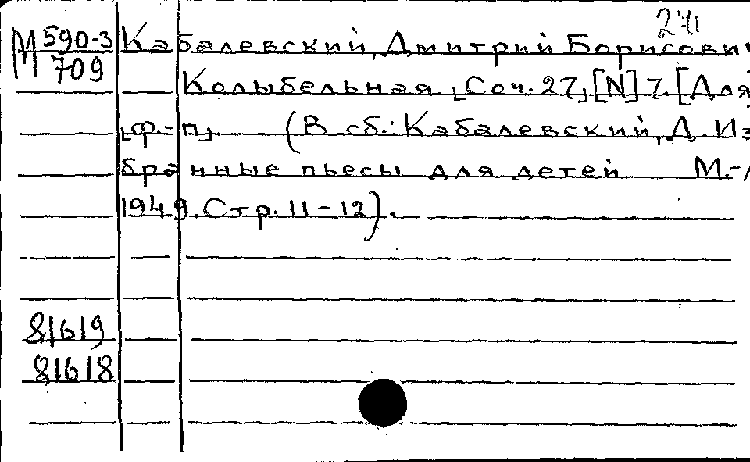 271
М 590-3 Кабалевский, Дмитрий Борисович
709 Колыбельная [Соч. 27], [N] 7. [Для
ф-п]. (В сб.: Кабалевский, Д. Из
бранные пьесы для детей М.-Л
1949. Стр. 11-12).
81619
81618